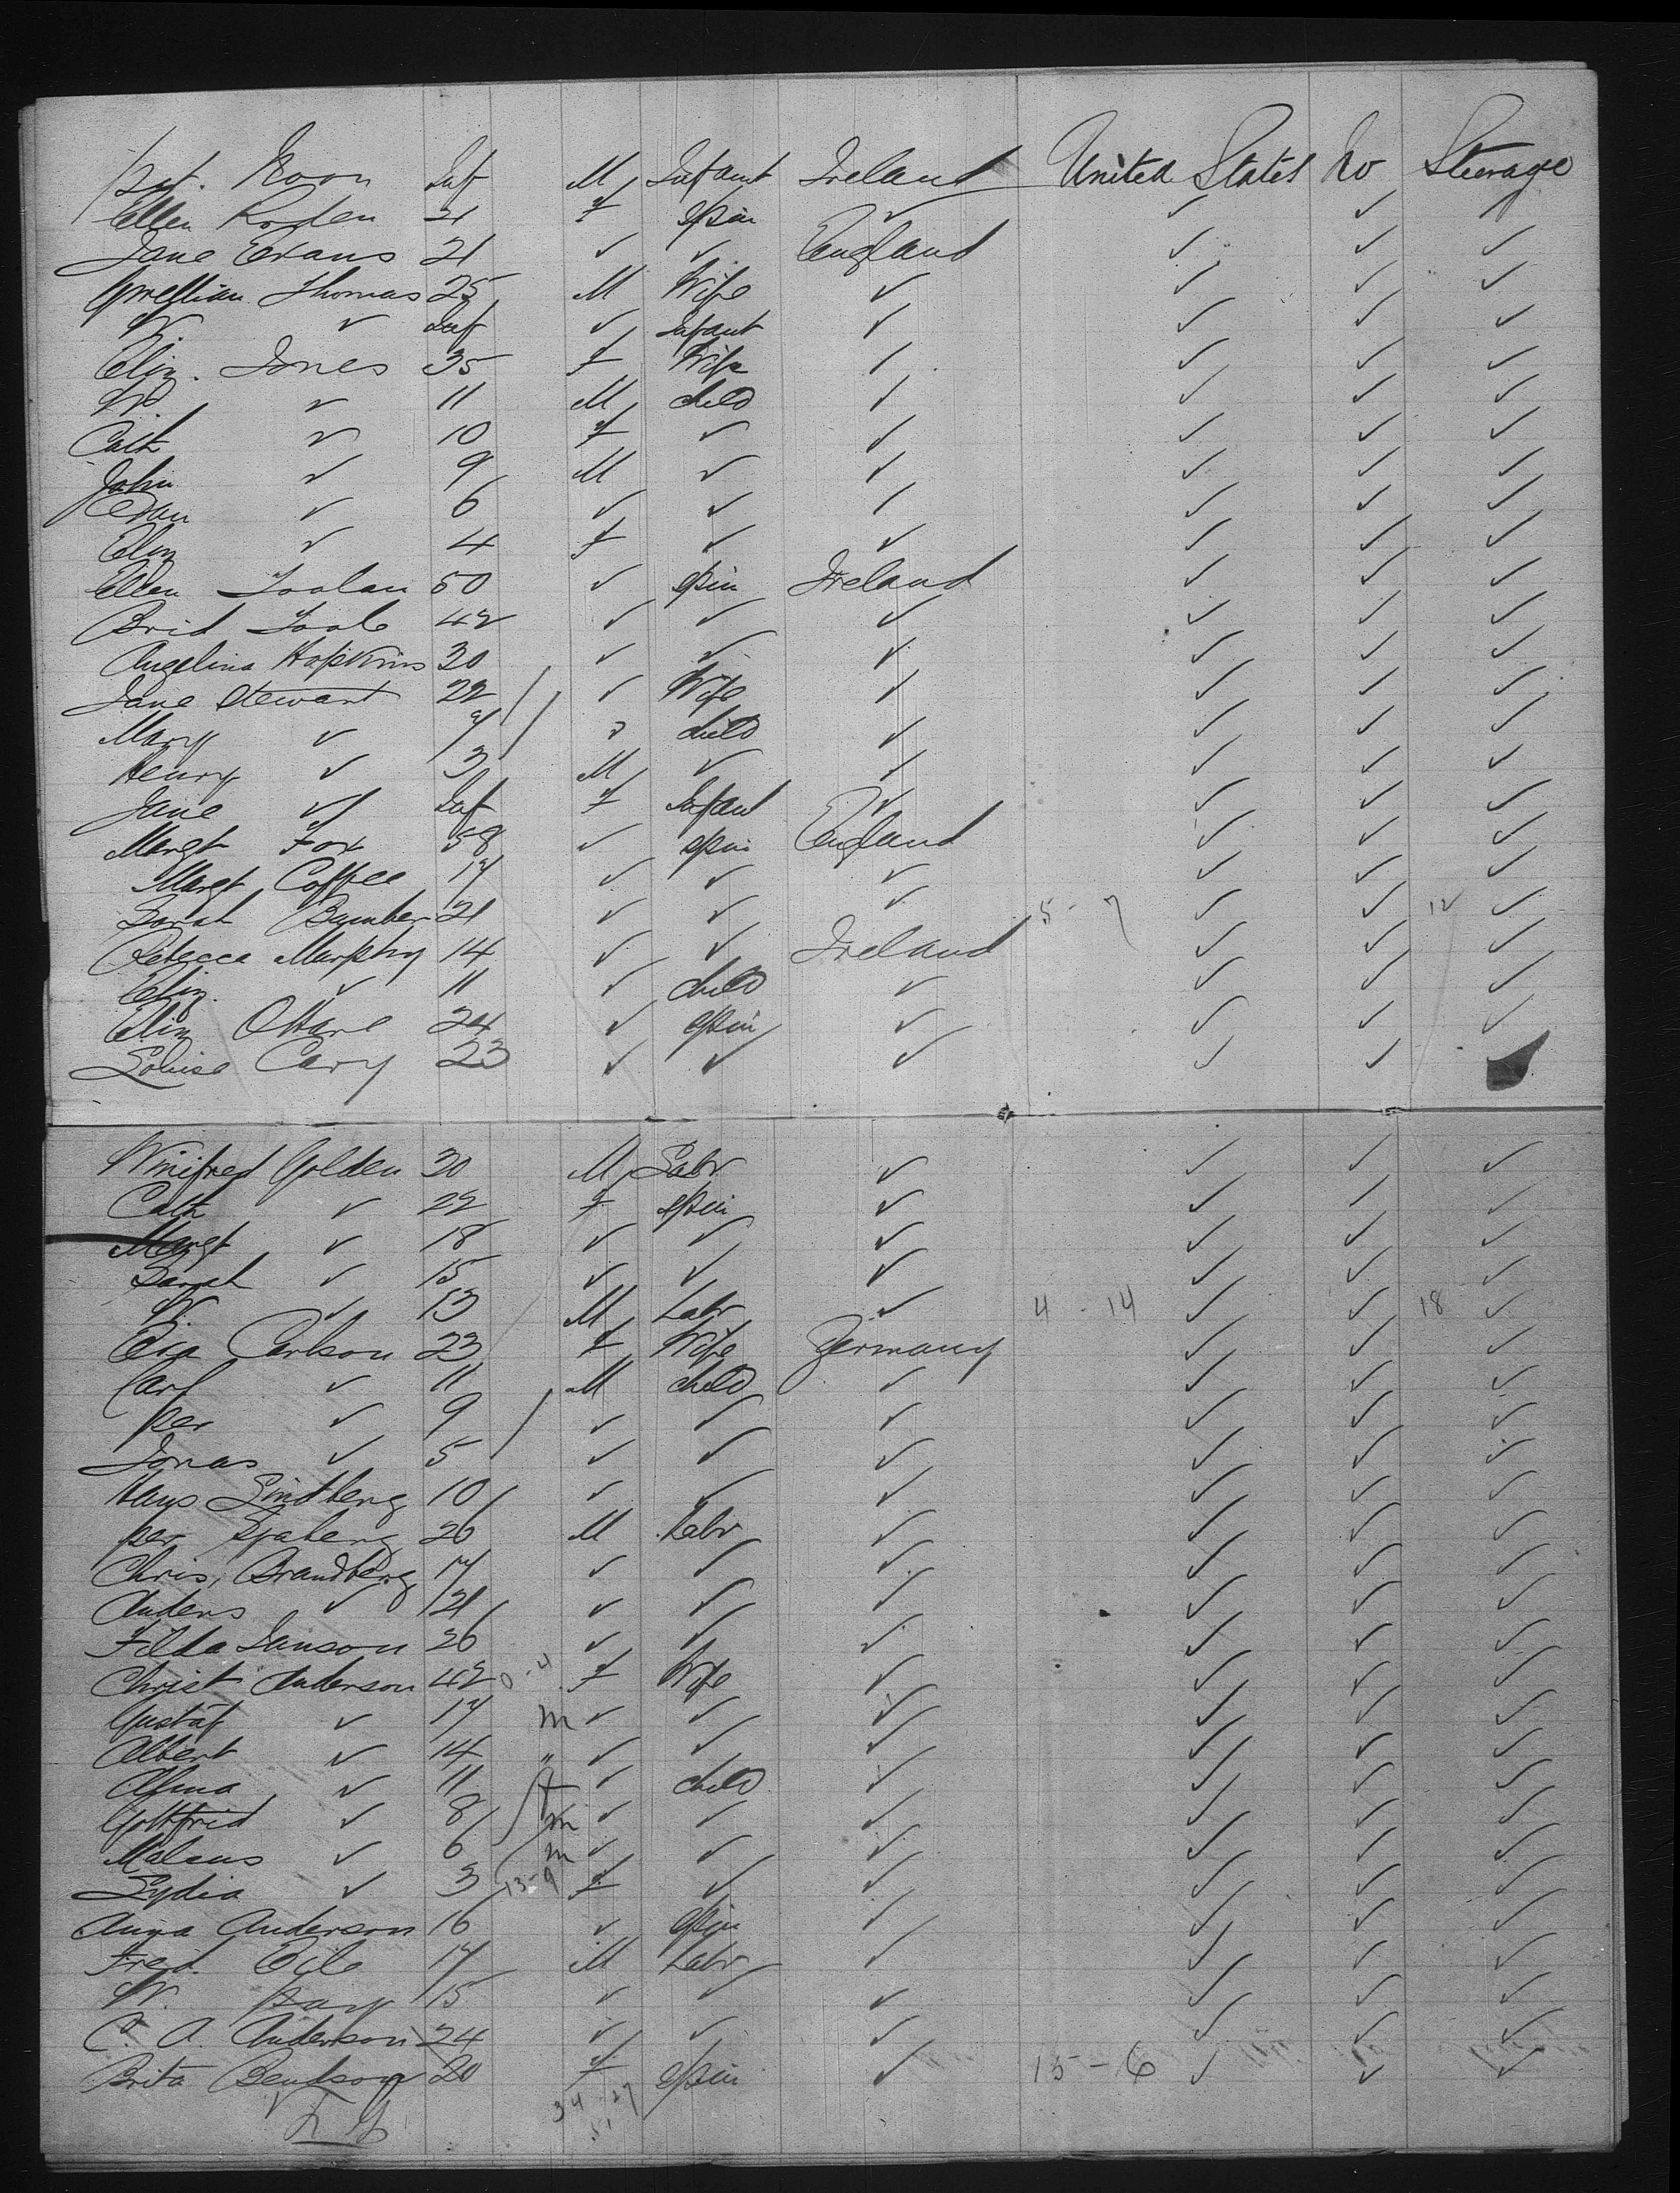 Pat. Moon Inf M Infant Ireland United States No Steerage
Ellen Roden 21 F Spin ✓ ✓ ✓ ✓
Jane Evans 21 ✓ ✓ England ✓ ✓ ✓
Gwellian Thomas 25 M Wife ✓ ✓ ✓ ✓
W. ✓ Inf ✓ Infant ✓ ✓ ✓ ✓
Eliz. Jones 35 F Wife ✓ ✓ ✓ ✓
W. ✓ 11 M child ✓ ✓ ✓ ✓
Cath ✓ 10 F ✓ ✓ ✓ ✓ ✓
John ✓ 9 M ✓ ✓ ✓ ✓ ✓
Evan ✓ 6 ✓ ✓ ✓ ✓ ✓ ✓
Eliz ✓ 4 F ✓ ✓ ✓ ✓ ✓
Ellen Toolan 50 ✓ Spin Ireland ✓ ✓ ✓
Brid Toole 42 ✓ ✓ ✓ ✓ ✓ ✓
Angelina Hopkins 30 ✓ ✓ ✓ ✓ ✓ ✓
Jane Stewart 22 ✓ Wife ✓ ✓ ✓ ✓
Mary ✓ 7 child ✓ ✓ ✓ ✓
Henry ✓ 3 M ✓ ✓ ✓ ✓ ✓
Jane ✓ Inf F Infant ✓ ✓ ✓ ✓
Margt Fox 58 ✓ Spin England ✓ ✓ ✓
Margt Coffee 17 ✓ ✓ ✓ ✓ ✓ ✓
Sarah Bamber 21 ✓ ✓ ✓ 5 - 7 ✓ ✓ 12 ✓
Rebecca Murphy 14 ✓ ✓ Ireland ✓ ✓ ✓
Eliz. ✓ 11 ✓ child ✓ ✓ ✓ ✓
Eliz OHare 24 ✓ Spin ✓ ✓ ✓ ✓
Louisa Cary 23 ✓ ✓ ✓ ✓ ✓
Winifred Golden 30 M Labr ✓ ✓ ✓ ✓
Cath ✓ 22 F Spin ✓ ✓ ✓ ✓
Margt ✓ 18 ✓ ✓ ✓ ✓ ✓ ✓
Sarah ✓ 15 ✓ ✓ ✓ ✓ ✓ ✓
W. ✓ 13 M Labr ✓ 4 - 14 ✓ ✓ 18 ✓
Eva Carlson 23 F Wife Germany ✓ ✓ ✓
Carl ✓ 11 M child ✓ ✓ ✓ ✓
Per ✓ 9 ✓ ✓ ✓ ✓ ✓ ✓
Jonas ✓ 5 ✓ ✓ ✓ ✓ ✓ ✓
Hans Lindberg 10 ✓ ✓ ✓ ✓ ✓ ✓
Per 26 M Labr ✓ ✓ ✓ ✓
Chris, Brandberg 17 ✓ ✓ ✓ ✓ ✓ ✓
Anders ✓ 21 ✓ ✓ ✓ ✓ ✓ ✓
Filda Janson 26 ✓ ✓ ✓ ✓ ✓ ✓
Christ Anderson 42 0-4 F Wife ✓ ✓ ✓ ✓
Gustaf ✓ 17 m ✓ ✓ ✓ ✓ ✓ ✓
Albert ✓ 14 " ✓ ✓ ✓ ✓ ✓ ✓
Alma ✓ 11 f ✓ child ✓ ✓ ✓ ✓
Gottfrid ✓ 8 m ✓ ✓ ✓ ✓ ✓ ✓
✓ 6 m ✓ ✓ ✓ ✓ ✓ ✓
Lydia ✓ 3 13-9 F ✓ ✓ ✓ ✓ ✓
Anna Anderson 16 ✓ Spin ✓ ✓ ✓ ✓
Fred. 17 M Labr ✓ ✓ ✓ ✓
W. 15 ✓ ✓ ✓ ✓ ✓ ✓
C. A. Anderson 24 ✓ ✓ ✓ ✓ ✓ ✓
Brita Bentson 20 F Spin ✓ 15 - 6 ✓ ✓ ✓
34 - 27
51